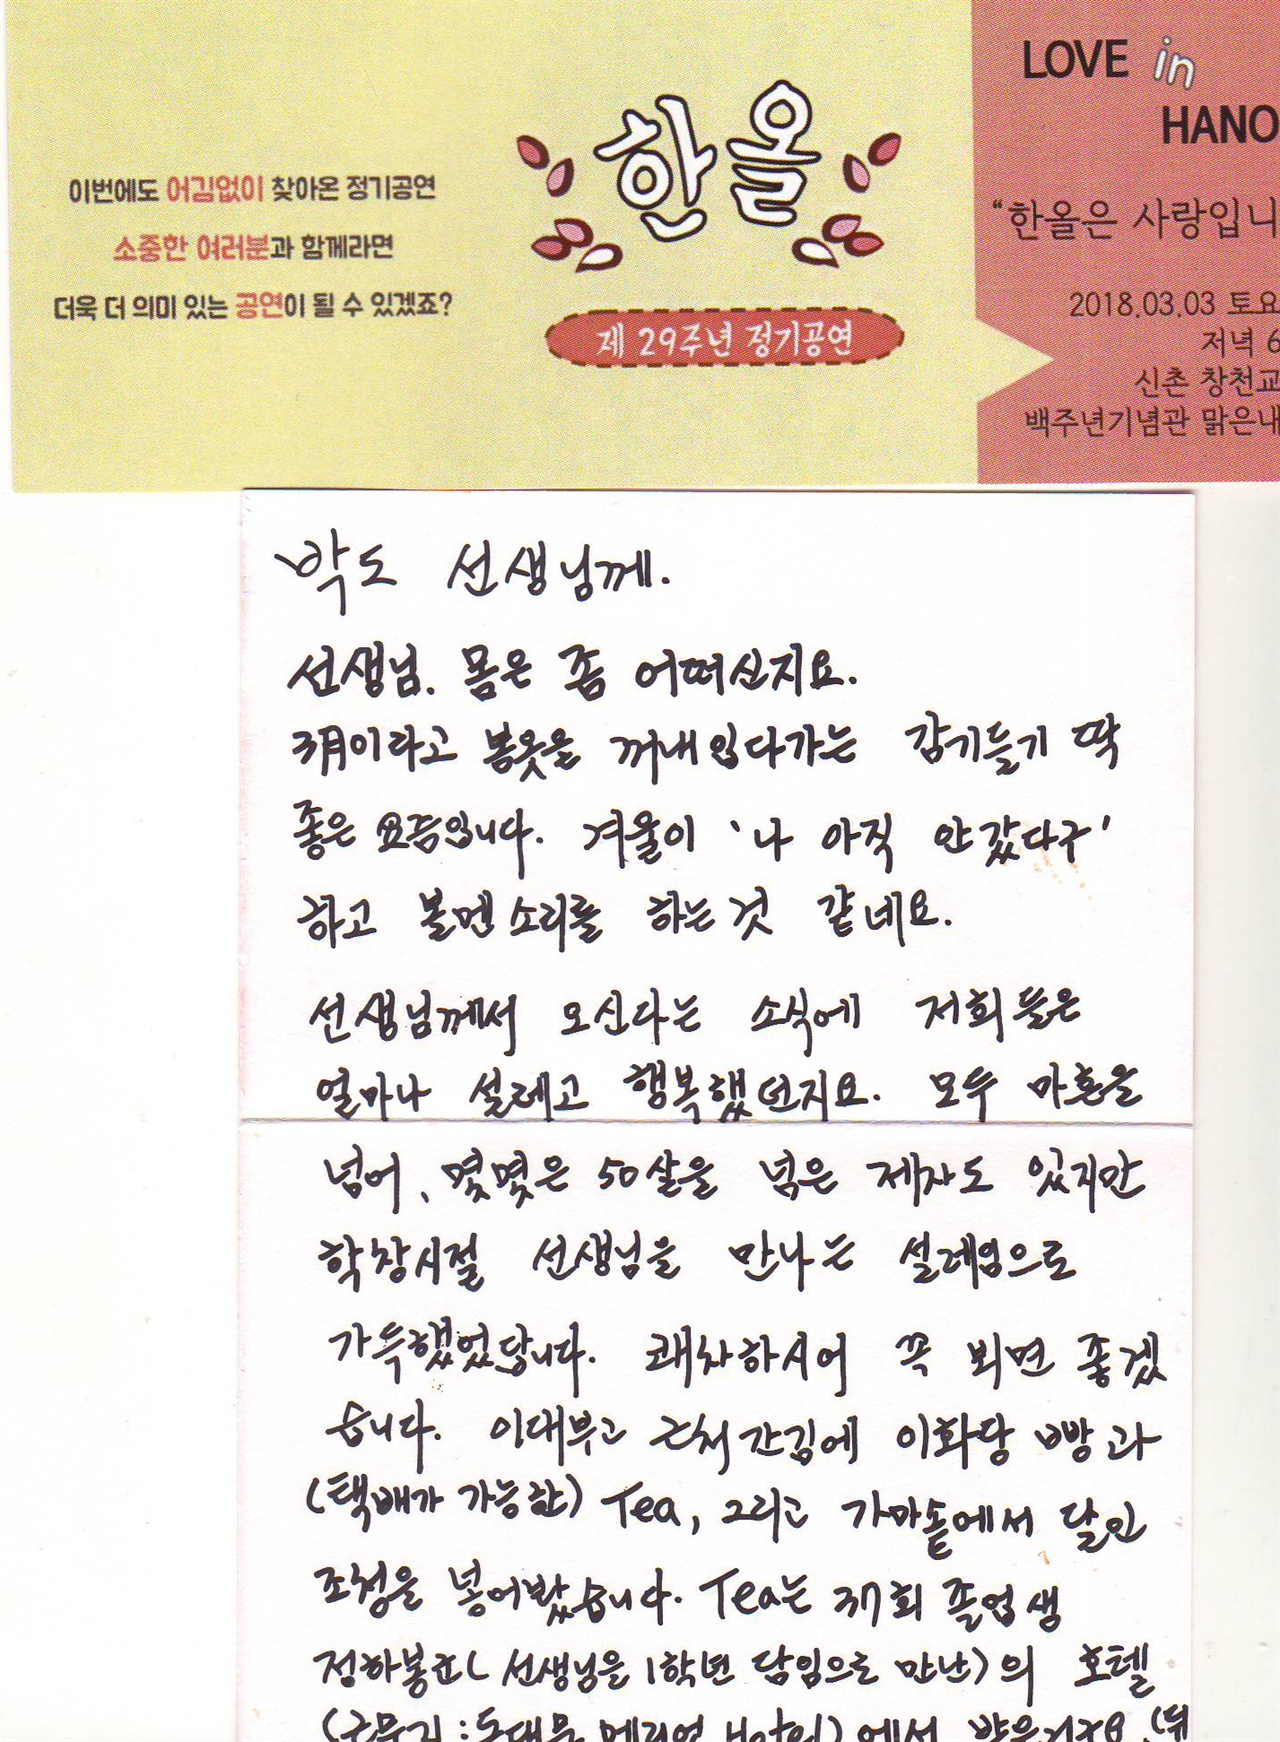 이번에도 어김없이 찾아온 정기공연
소중한 여러분과 함께라면
더욱 더 의미 있는 공연이 될 수 있겠죠?
한올
제 29주년 정기공연
LOVE in
HANO
“한올은 사랑입니
2018.03.03 토요
저녁 6
신촌 창천교
백주년기념관 맑은내
박도 선생님께.
선생님. 몸은 좀 어떠신지요.
3月이라고 봄옷을 꺼내입다가는 감기들기 딱
좋은 요즘입니다. 겨울이 '나 아직 안갔다구'
하고 볼멘소리를 하는것 같네요.
선생님께서 오신다는 소식에 저희들은
얼마나 설레고 행복했던지요. 모두 마흔을
넘어, 몇몇은 50살을 넘은 제자도 있지만
학창시절 선생님을 만나는 설레임으로
가득했었답니다. 쾌차하시어 꼭 뵈면 좋겠
습니다. 이대부고 근처 간김에 이화당 빵과
(택배가 가능한) Tea, 그리고 가마솥에서 달인
조청을 넣어봤습니다. Tea는 37회 졸업생
정하봉군( 선생님을 1학년 담임으로 만난)의 호텔
(근무지 : 동대문 메리어트 Hotel)에서